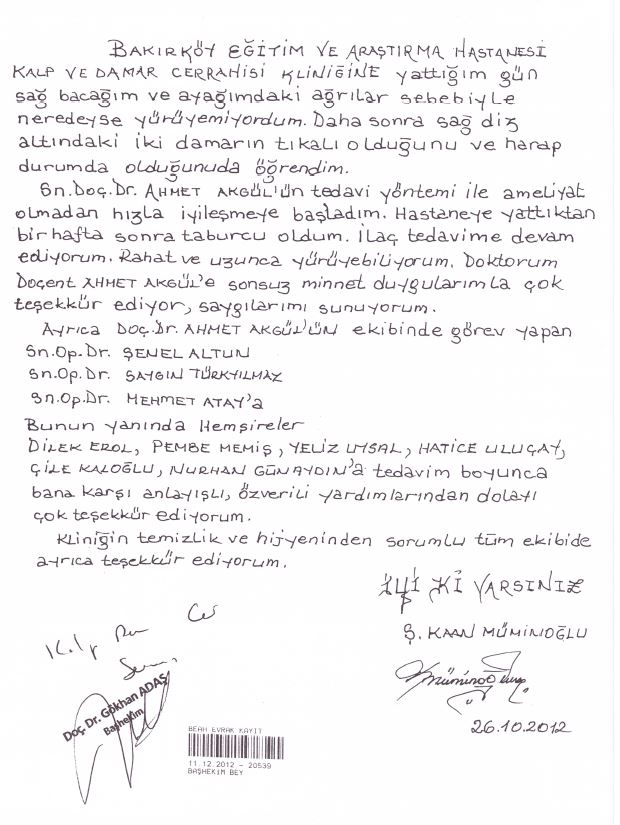 BAKIRKÖY EĞİTİM VE ARAŞTIRMA HASTANESİ
KALP VE DAMAR CERRAHİSİ KLİNİĞİNE yattığım gün
sağ bacağım ve ayağımdaki ağrılar sebebiyle
neredeyse yürüyemiyordum. Daha sonra sağ diz
altındaki iki damarın tıkalı olduğunu ve harap
durumda olduğunuda öğrendim.
Sn. Doç. Dr. AHMET AKGÜL'ün tedavi yöntemi ile ameliyat
olmadan hızla iyileşmeye başladım. Hastaneye yattıktan
bir hafta sonra taburcu oldum. İlaç tedavime devam
ediyorum. Rahat ve uzunca yürüyebiliyorum. Doktorum
Doçent AHMET AKGÜL'e sonsuz minnet duygularımla çok
teşekkür ediyor, saygılarımı sunuyorum.
Ayrıca DOÇ. Dr. AHMET AKGÜL'ÜN ekibinde görev yapan
Sn. Op. Dr. ŞENEL ALTUN
Sn. Op. Dr. SAYGIN TÜRKYILMAZ
Sn. Op. Dr. MEHMET ATAY'a
Bunun yanında Hemşireler
DİLEK EROL, PEMBE MEMİŞ, YELİZ UYSAL, HATİCE ULUÇAY,
ÇİLE KALOĞLU, NURHAN GÜNAYDIN'a tedavim boyunca
bana karşı anlayışlı, özverili yardımlarından dolayı
çok teşekkür ediyorum.
Kliniğin temizlik ve hijyeninden sorumlu tüm ekibide
ayrıca teşekkür ediyorum.
İYİ Kİ VARSINIZ
Ş. KAAN MÜMİNOĞLU
26.10.2012
Doç. Dr. Gökhan ADAŞ
Başhekim
BEAH EVRAK KAYIT
11.12.2012 - 20539
BAŞHEKİM BEY